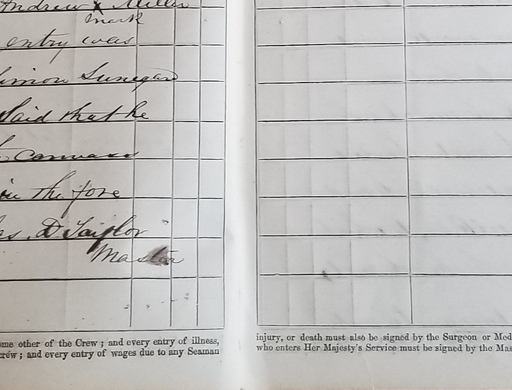 Andrew X Miller
mark
entry was
Simon Lunegan
Said that he
canvass
in the fore
as. D Taylor
Master
ome other of the Crew; and every entry of illness,
crew; and every entry of wages due to any Seaman
injury, or death must also be signed by the Surgeon or Med
who enters Her Majesty's Service must be signed by the Mas